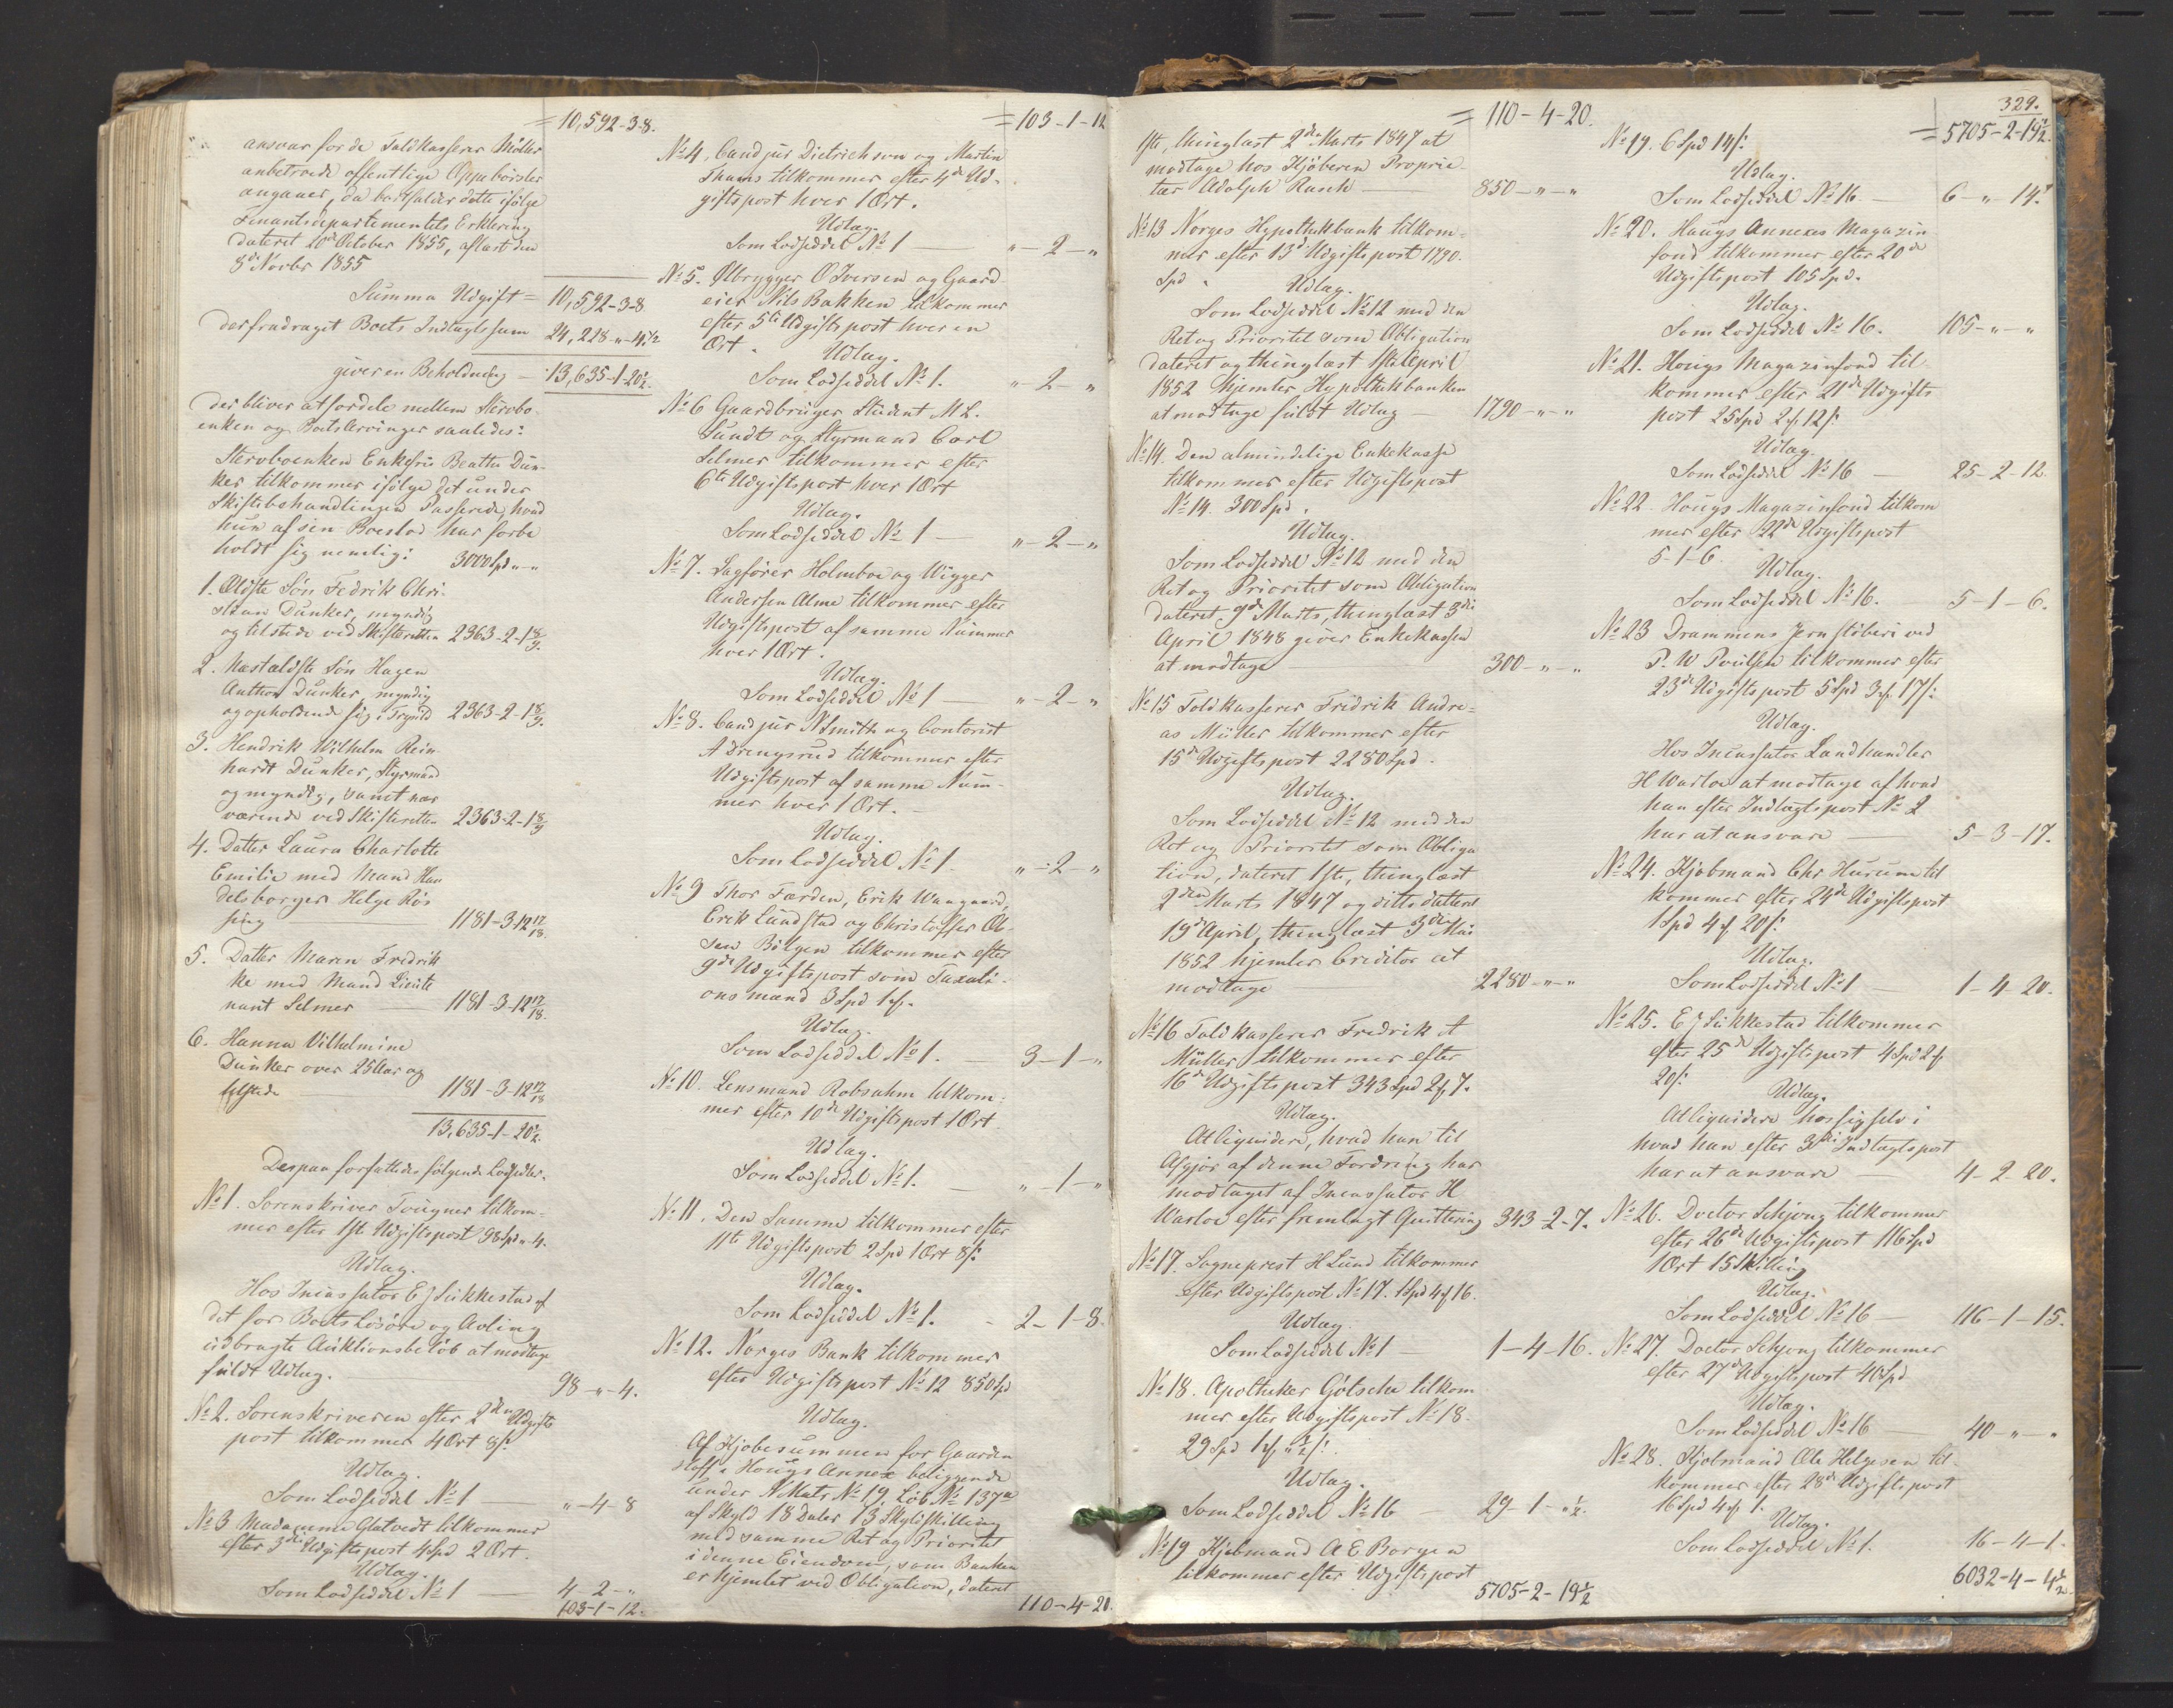 = 10,592-3-8.
ansvar for de Toldkasserer Müller
anbetroede offentlige Oppebörsler
angaaer, da bortfalder dette ifölge
Finantsdepartementets Erklæring
dateret 20de October 1855, aflæst den
8de Novbr 1855
Summa Udgift = 10,592-3-8
Derfradraget Boets Indtægtssum 24,228-"-4 1/2
giver en Beholdning - 13,635-1-20 1/2.
der bliver at fordele mellem Stervbo-
enken og Boets Arvinger saaledes:
Stervboenken Enkefrü Beathe Dün-
ker tilkommer ifölge det ünder
Skiftebehandlingen Passerede, hvad
hün af sin Boeslod har forbe
holdt sig nemlig: 3000 Spd "-"
1. Ældste Sön Fedrik Chri-
stian Dünker, myndig
og tilstede ved Skifteretten 2363-2-1 8/9.
2. Næstældste Sön Hagen
Anthon Dünker, myndig
og opholdende sig i Trysild 2363-2-1 8/9.
3. Hendrik Wilhelm Rein-
hardt Dünker, Styrmand
og myndig, samt nær
værende ved Skifteretten 2363-2-1 8/9
4. Datter Laura Charlotte
Emilie med Mand Han
delsborger Helge Rös
sing 1181-3-12 17/18.
5. Datter Maren Fredrik
ke med Mand Lieute
nant Selmer 1181-3-12 17/18.
6. Hanna Vilhelmine
Dünker over 25 Aar og
tilstede 1181-3-12 17/18
13,635-1-20 1/2.
Derpaa forfattedes fölgende Lodsedler.
No 1. Sorenskriver Tougner tilkom-
mer efter 1ste Udgiftspost 98 Spd "-4.
Udlag.
Hos Incassator E J Sükkestad af
det for Boets Lösöre og Avling
üdbragte Aüktionsbelöb at modtage
füldt Udlæg. 98-"-4.
No 2. Sorenskriveren efter 2den Udgifts
post tilkommer 4 Ort 8 s:
Udlæg.
Som Lodseddel No 1 "-4-8
No 3 Madamme Glatvedt tilkommer
efter 3die Udgiftspost 4 Spd 2 Ort.
Udlæg.
Som Lodseddel No 1 4-2-"
103-1-12.
= 103-1-12
No 4. Cand jur Dietrichson og Martin
Thams tilkommer efter 4de Ud-
giftspost hver 1 Ort.
Udlæg.
Som Lodseddel No 1 "-2-"
No 5. Ølbrygger O Iversen og Gaard
eier Nils Bakken tilkommer
efter 5te Udgiftspost hver en
Ort. Udlæg.
Som Lodseddel No 1. "-2-"
No 6 Gaardbrüger, Stüdent M L.
Sundt og Styrmand Carl
Selmer tilkommer efter
6te Udgiftspost hver 1 Ort
Udlæg.
Som Lodseddel No 1 - "-2-"
No 7. Sagförer Holmboe og Wigger
Andersen Alme tilkommer efter
Udgiftspost af samme Nummer
hver 1 Ort.
Udlæg.
Som Lodseddel No 1 "-2-"
No 8. Cand jür N Smith og Contorist
A Drengsrud tilkommer efter
Udgiftspost af samme Num-
mer hver 1 Ort.
Udlæg.
Som Lodseddel No 1. "-2-"
No 9 Thor Færden, Erik Waagaard,
Erik Lündstad og Christoffer Ol-
sen Bölgen tilkommer efter
9de Udgiftspost som Taxati-
onsmænd 3 Spd 1 ort.
Udlæg.
Som Lodseddel No 1. 3-1-"
No 10. Lensmand Robsahm tilkom-
mer efter 10de Udgiftspost 1 Ort.
Udlæg.
Som Lodseddel No 1. - "-1-"
No 11. Den Samme tilkommer efter
11te Udgiftspost 2 Spd 1 Ort 8 s:
Udlæg.
Som Lodseddel No 1. - 2-1-8.
No 12. Norges Bank tilkommer
efter Udgiftspost No 12 850 Spd
Udlæg.
Af Kjöbesümmen for Gaarden
Hoff i Hougs Annex beliggende
ünder N Matr No 19, Löb No 137a
af Skyld 18 Daler 13 Skylskilling
med samme Ret og Prioritet
i denne Eiendom, som Banken
er hjemlet ved Obligation, dateret
110-4-20.
= 110-4-20.
1ste, thinglæst 2den Marts 1847 at
modtage hos Kjöberen Proprie-
tær Adolph Rasch 850-"-"
No 13 Norges Hypothekbank tilkom-
mer efter 13de Udgiftspost 1790.
Spd. Udlæg.
Som Lodseddel No 12 med den
Ret og Prioritet som Obligation
dateret og thinglæst 1ste April
1852 hjemler Hypothekbanken
at modtage fuldt Udlæg - 1790-"-"
No 14. Den almindelige Enkekasse
tilkommer efter Udgiftspost
No 14. 300 Spd.
Udlæg.
Som Lodseddel No 12 med den
Ret og Prioritet som Obligation
dateret 9de Marts, thinglæst 3die
April 1848 giver Enkekassen
at modtage 300-"-"
No 15 Toldkasserer Fridrik Andre-
as Müller tilkommer efter
15de Udgiftspost 2280 Spd.
Udlæg.
Som Lodseddel No 12 med den
Ret og Prioritet som Obliga
tion, dateret 1ste, thinglæst
2den Marts 1847 og ditto dateret
19de April, thinglæst 3die Mai
1852 hjemler Creditor at
modtage 2280-"-"
No 16 Toldkasserer Fredrik A
Müller tilkommer efter
16de Udgiftspost 343 Spd 2 ort 7.
Udlæg.
At liqvidere, hvad han til
Afgjör af denne Fordring har
modtaget af Incassator H
Warloe efter fremlagt Qvittering 343-2-7.
No 17. Sogneprest H Lünd tilkommer
efter Udgiftspost No 17. 1 Spd 4 ort 16.
Udlæg
Som Lodseddel No 1 - 1-4-16.
No 18. Apotheker Götsche tilkom
mer efter Udgiftspost No 18.
29 Spd 1 ort " 1/2 s:.
Udlæg.
Som Lodseddel No 16 29-1-" 1/2.
No 19 Kjöbmand A E. Borgen
tilkommer efter Udgiftspost
5705-2-19 1/2
329.
= 5705-2-19 1/2.
No 19. 6 Spd 14 s:
Udlæg.
Som Lodseddel No 16. - 6-"-14.
No 20. Haugs Annexes Magazin
fond tilkommer efter 20de
Udgiftspost 105 Spd.
Udlæg.
Som Lodseddel No 16. 105-"-"
No 21. Hougs Magazinfond til
kommer efter 21de Udgifts
post 25 Spd 2 ort 12 s:
Udlæg.
Som Lodseddel No 16 - 25-2-12.
No 22. Hougs Magazinfond tilkom
mer efter 22de Udgiftspost
5-1-6. Udlæg.
Som Lodseddel No 16. 5-1-6.
No 23 Drammens Jernstöberi ved
P. W Poulsen tilkommer efter
23de Udgiftspost 5 Spd 3 ort 17 s:
Udlæg.
Hos Incassator Landhandler
H Warloe at modtage af hvad
han efter Indtægtspost No 2
har at ansvare 5-3-17.
No 24. Kjöbmand Chr Hurum til
kommer efter 24de Udgiftspost
1 Spd 4 ort 20 s:
Udlæg.
Som Lodseddel No 1 - 1-4-20.
No 25. E J Sükkestad tilkommer
efter 25de Udgiftspost 4 Spd 2 ort
20 s: Udlæg.
At liqvidere hos sig selv i
hvad han efter 3die Indtægtspost
har at ansvare 4-2-20.
No 26. Doctor Schjong tilkommer
efter 26de Udgiftspost 116 Spd
1 Ort 15 Skilling
Udlæg.
Som Lodseddel No 16 - 116-1-15.
No 27. Doctor Schjong tilkommer
efter 27de Udgiftspost 40 Spd
Udlæg.
Som Lodseddel No 16 40-"-"
No 28. Kjöbmand Ole Helgesen til-
kommer efter 28de Udgiftspost
16 Spd 4 ort 1. Udlæg.
Som Lodseddel No 1. 16-4-1.
6032-4-4 1/2.